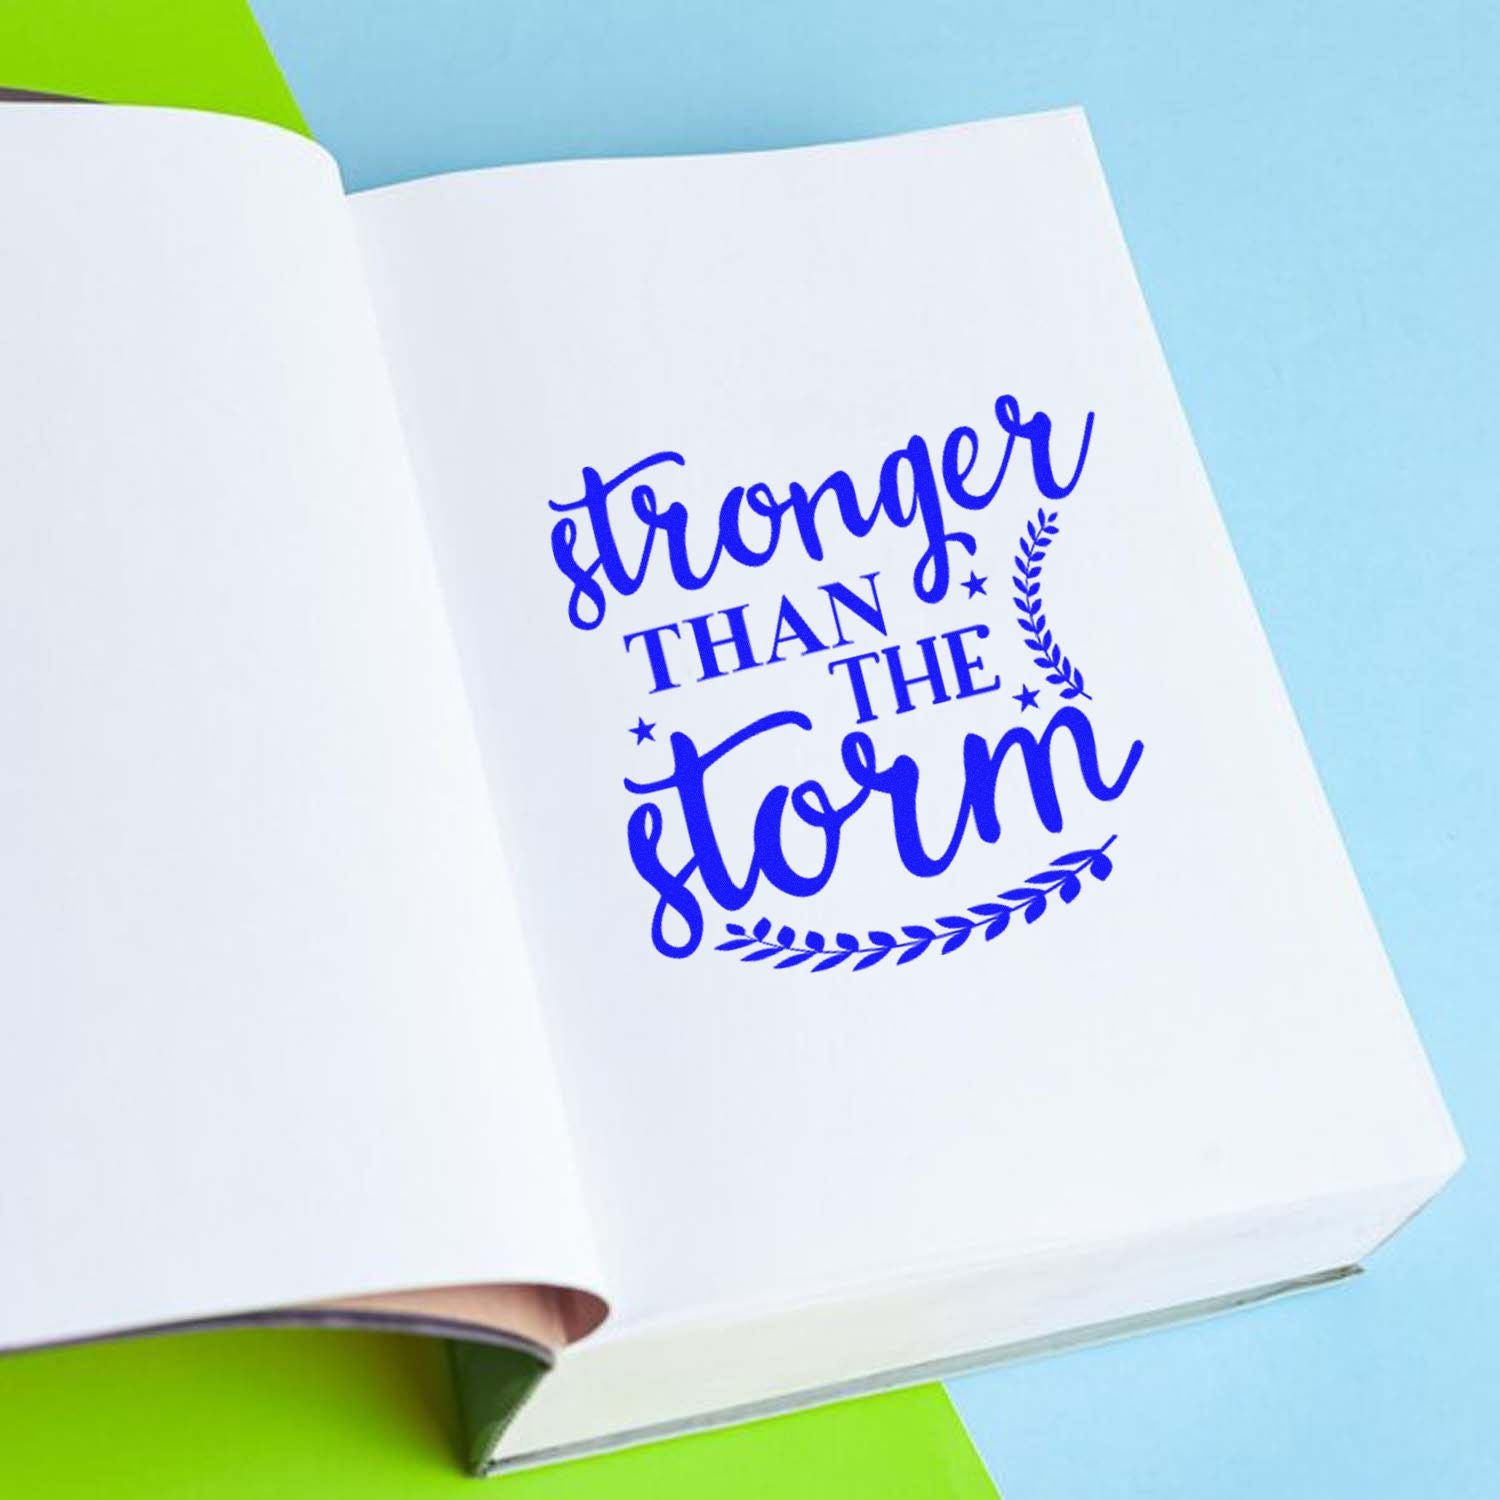 stronger
THAN
THE
storm